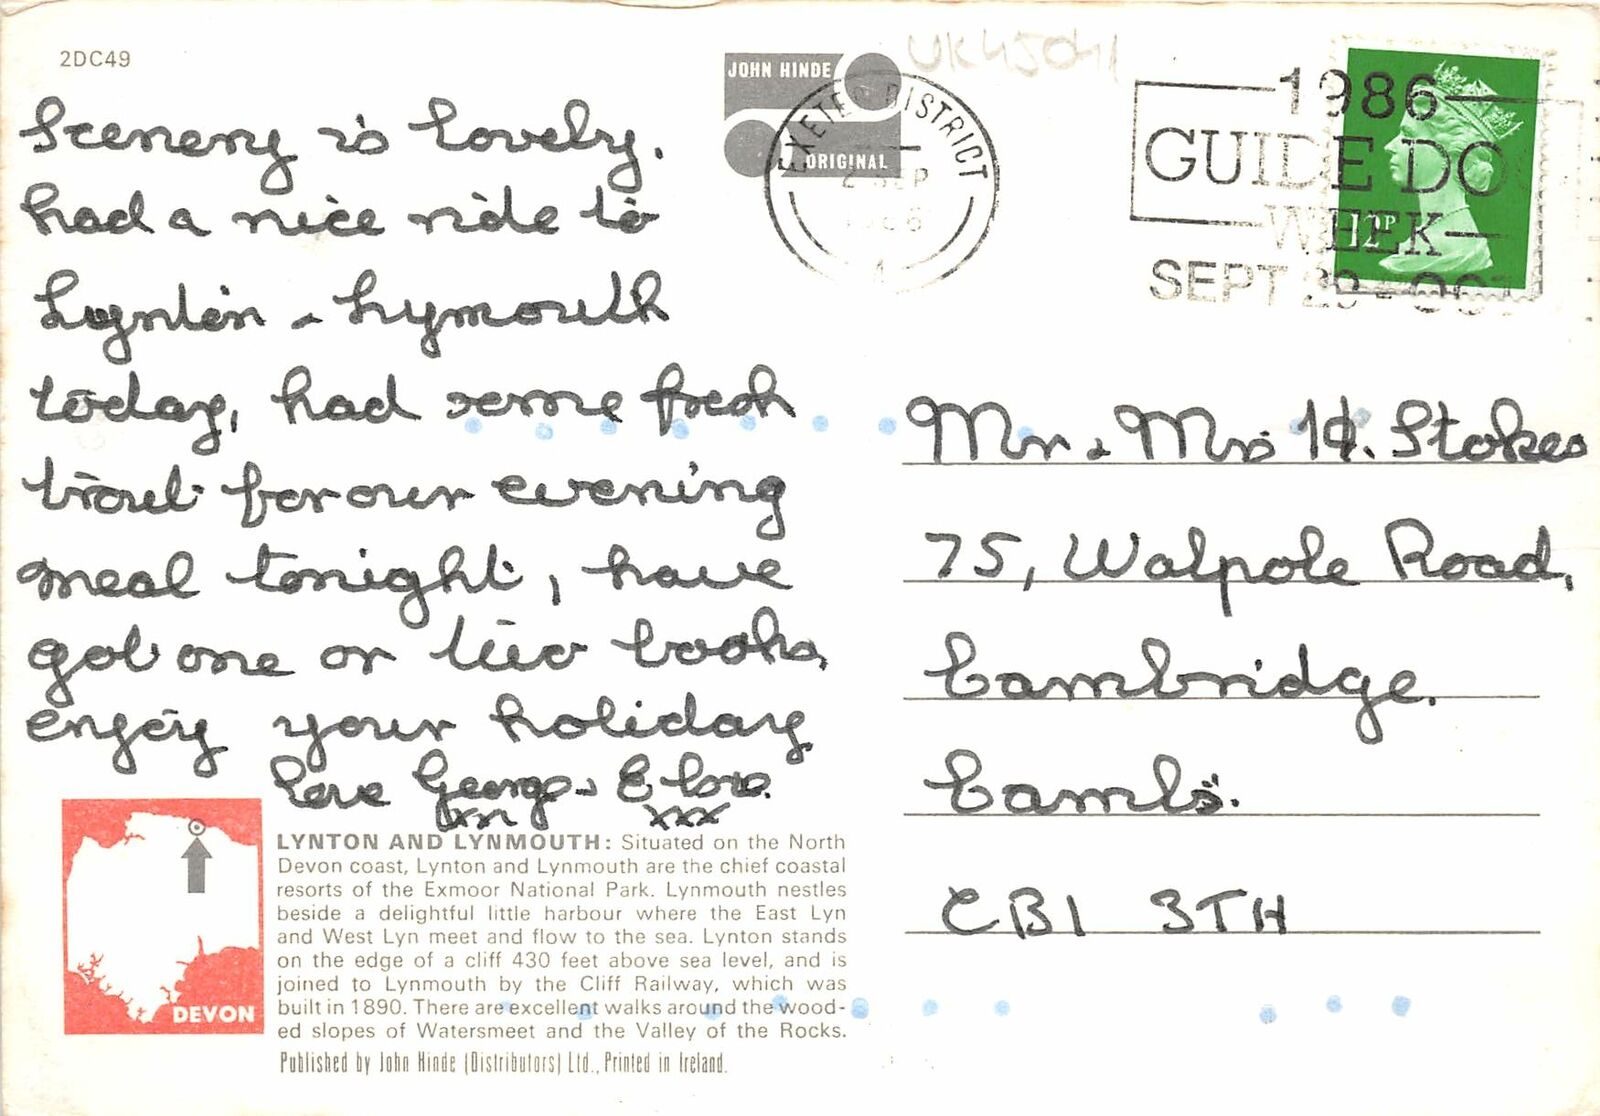 2DC49
Scenery is lovely.
had a nice ride to
Lynton & Lymouth
today, had some fresh
trout for our evening
meal tonight, have
got one or two books,
enjoy your holiday,
Love George &
xxx
LYNTON AND LYNMOUTH: Situated on the North
Devon coast, Lynton and Lynmouth are the chief coastal
resorts of the Exmoor National Park. Lynmouth nestles
beside a delightful little harbour where the East Lyn
and West Lyn meet and flow to the sea. Lynton stands
on the edge of a cliff 430 feet above sea level, and is
joined to Lynmouth by the Cliff Railway, which was
built in 1890. There are excellent walks around the wood-
ed slopes of Watersmeet and the Valley of the Rocks.
Published by John Hinde (Distributors) Ltd., Printed in Ireland.
DEVON
JOHN HINDE
ORIGINAL
UK45041
EXETER DISTRICT
2 SEP
1986
GUIDE DO
WEEK
SEPT
12P
Mr & Mrs H. Stokes
75, Walpole Road,
Cambridge.
Cambs.
CB1 3TH